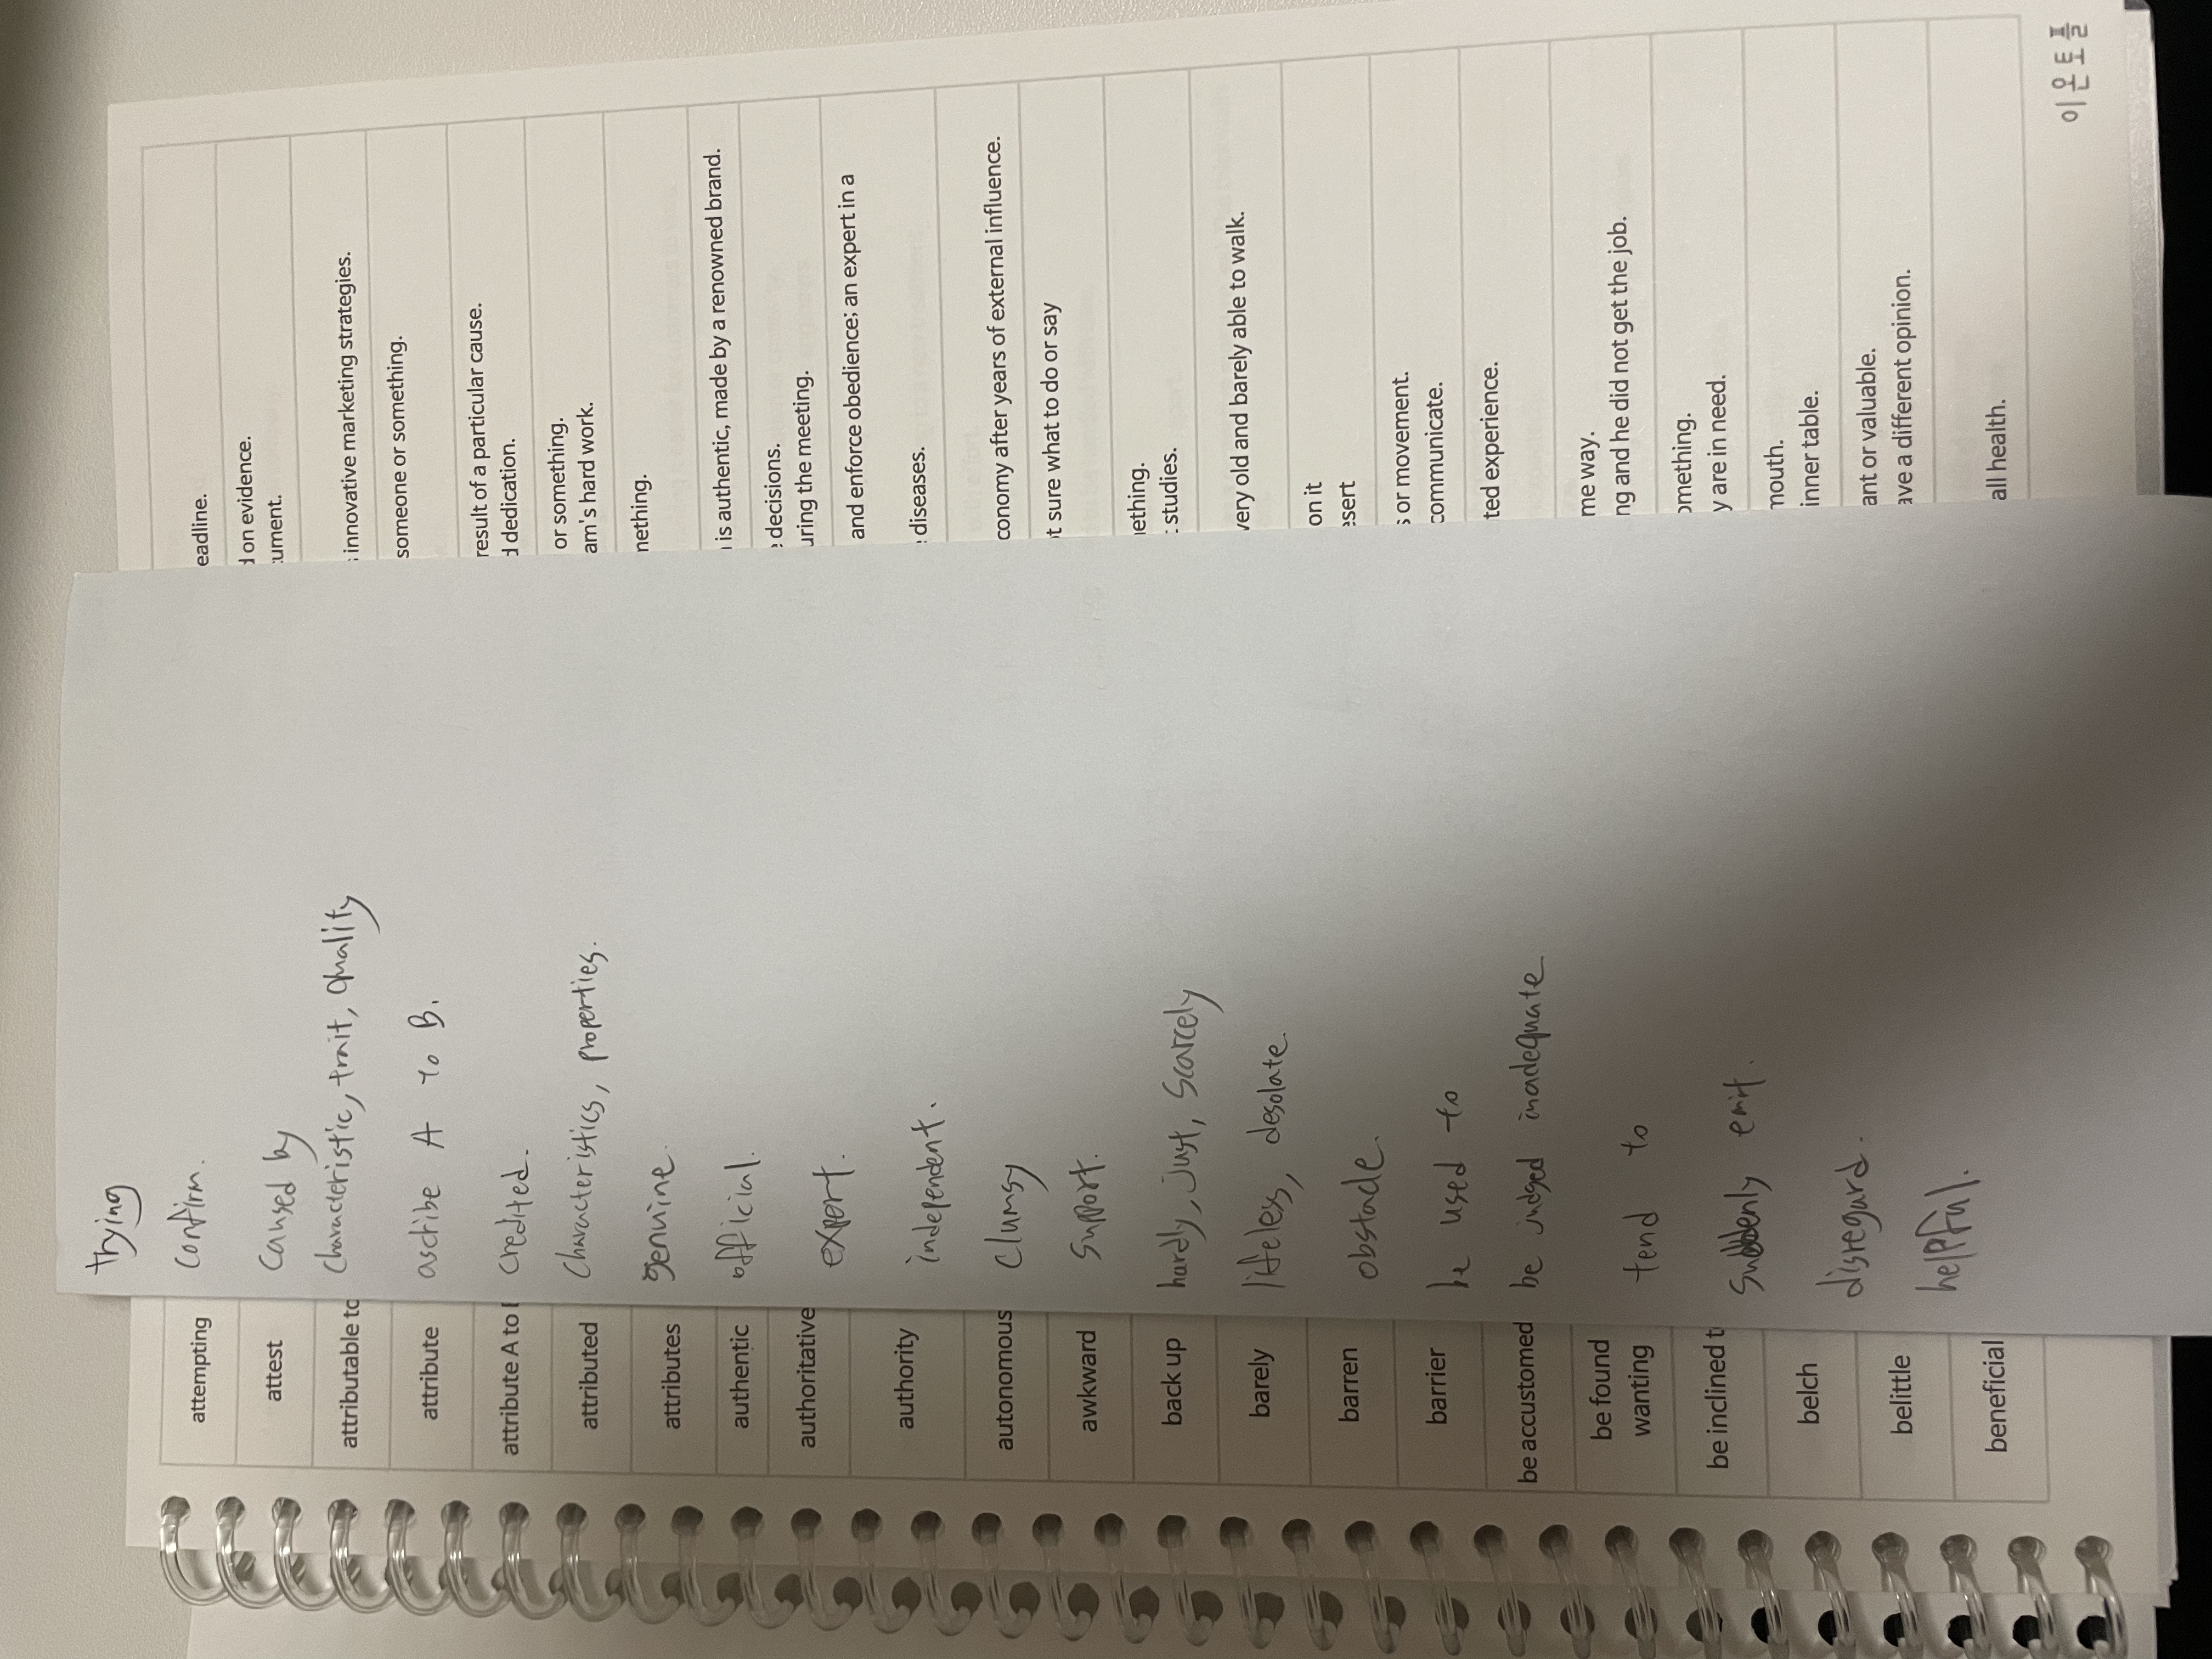 attempting
attest
attributable to
attribute
attribute A to
attributed
attributes
authentic
authoritative
authority
autonomous
awkward
back up
barely
barren
barrier
be accustomed
be found
wanting
be inclined t
belch
belittle
beneficial
trying
Confirm.
Caused by
Characteristic, trait, quality
ascribe A to B.
Credited.
Characteristics, properties.
genuine.
official.
expert.
independent.
Clumsy
Support.
hardly, just, Scarcely
lifeless, desolate
obstacle.
be used to
be judged inadequate
tend to
Suddenly emit.
disregard.
helpful.
eadline.
d on evidence.
tument.
innovative marketing strategies.
someone or something.
result of a particular cause.
d dedication.
or something.
am's hard work.
nething.
is authentic, made by a renowned brand.
decisions.
uring the meeting.
and enforce obedience; an expert in a
diseases.
conomy after years of external influence.
t sure what to do or say
ething.
studies.
very old and barely able to walk.
on it
esert
s or movement.
communicate.
ted experience.
me way.
ng and he did not get the job.
omething.
y are in need.
mouth.
inner table.
ant or valuable.
ave a different opinion.
all health.
이은토플